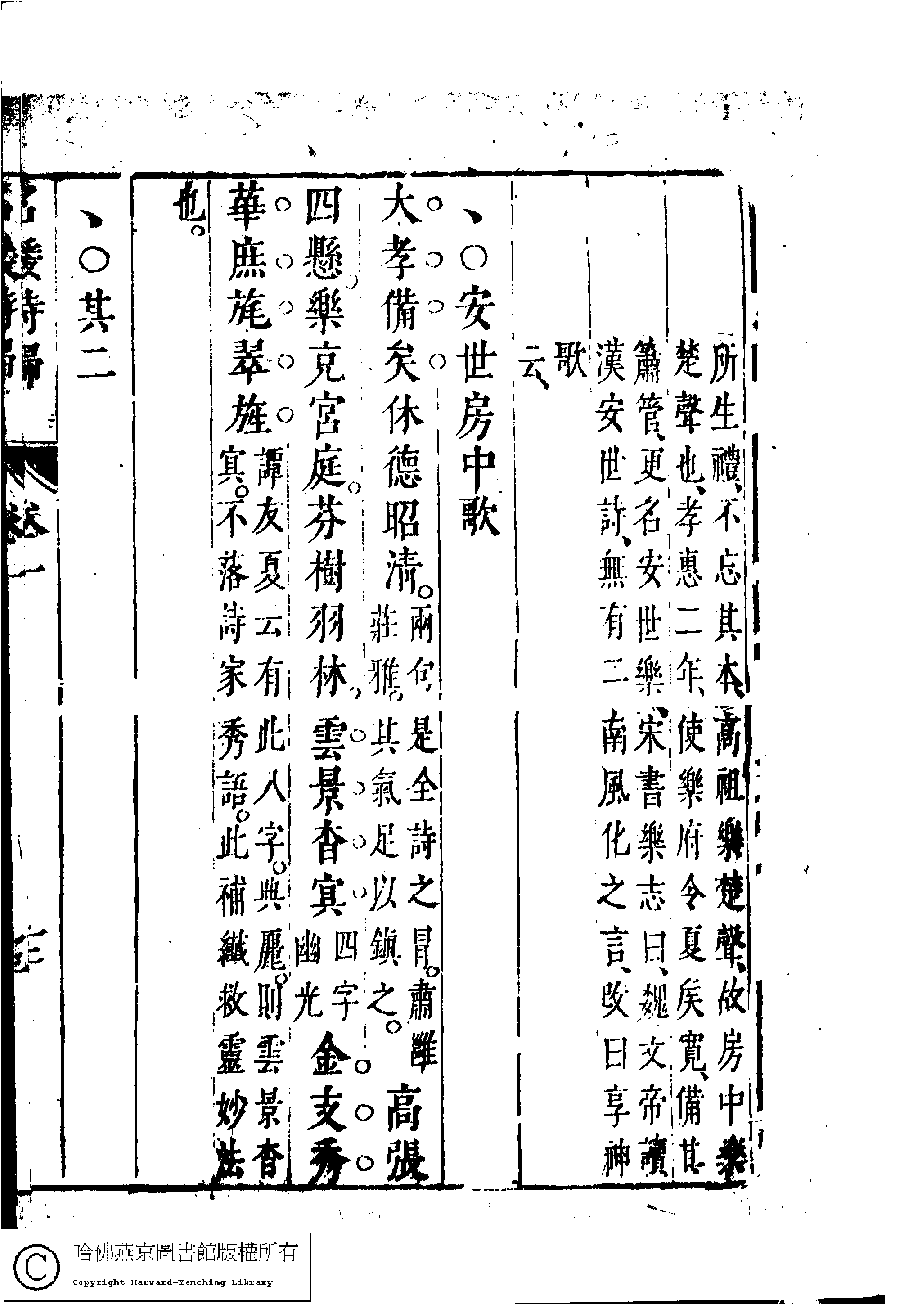 所生禮、不忘其本、高祖樂楚聲、故房中樂
楚聲也、孝惠二年、使樂府令夏矦寬、備其
簫管、更名安世樂、宋書樂志曰、魏文帝讀
漢安世詩、無有二南風化之言、改曰享神
歌
云、
、○安世房中歌
大孝備矣休德昭清。兩句是全詩之冒。肅雝莊雅。其氣足以鎮之。高張
四懸樂充宮庭。芬樹羽林。雲景杳冥四字幽光金支秀
華庶旄翠旌譚友夏云有此八字。典麗。則雲景杳冥。不落詩家秀語。此補纖救靈妙法
也。
、○其二
名媛詩歸
卷一
哈佛燕京圖書館版權所有
Copyright Harvard-Yenching Library